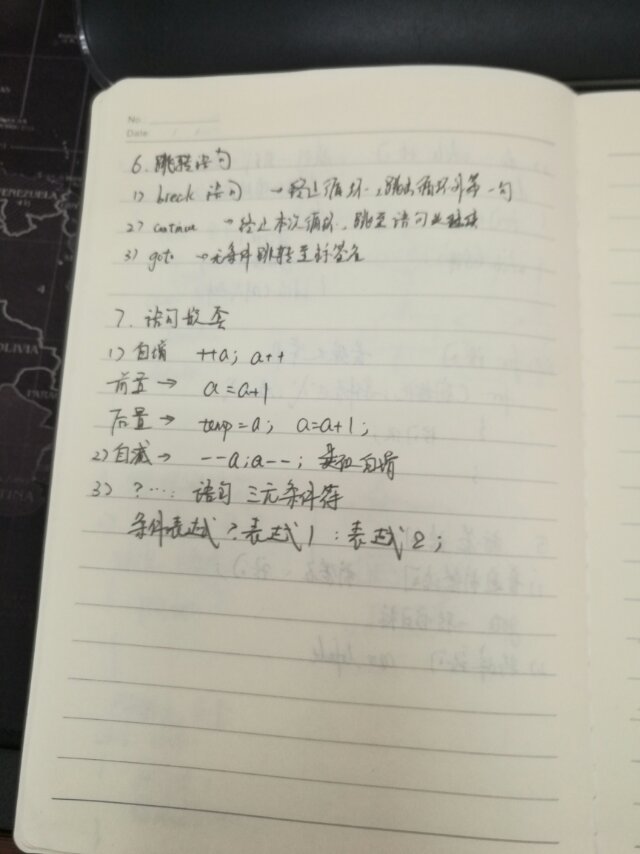 No.
Date / /
6. 跳转语句
1) break 语句 → 终止循环，跳出循环外第一句
2) continue → 终止本次循环，跳至语句处继续
3) goto → 无条件跳转至标签名
7. 语句嵌套
1) 自增 ++a; a++
前置 → a=a+1
后置 → temp=a; a=a+1;
2) 自减 → --a; a--; 类似自增
3) ?…: 语句 三元条件符
条件表达式 ? 表达式1 : 表达式2;
VENEZUELA
BOLIVIA